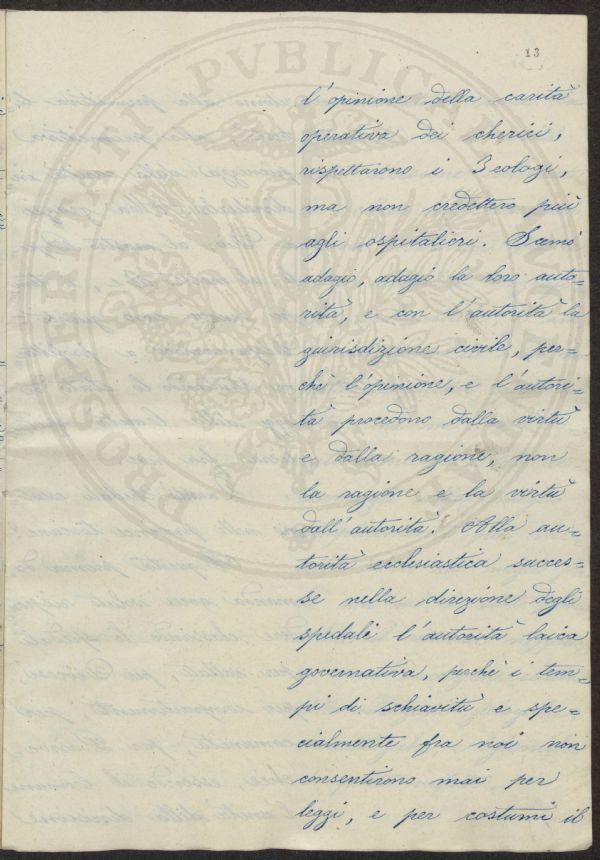 13
l'opinione della carità
operativa dei cherici,
rispettarono i Teologi,
ma non credettero più
agli ospitalieri. Scemò
adagio, adagio la loro auto=
rità, e con l'autorità la
giurisdizione civile, per=
chè l'opinione, e l'autori=
tà procedono dalla virtù
e dalla ragione, non
la ragione e la virtù
dall'autorità. Alla au=
torità ecclesiastica succes=
se nella direzione degli
spedali l'autorità laica
governativa, perchè i tem=
pi di schiavitù e spe=
cialmente fra noi non
consentirono mai per
leggi, e per costumi il